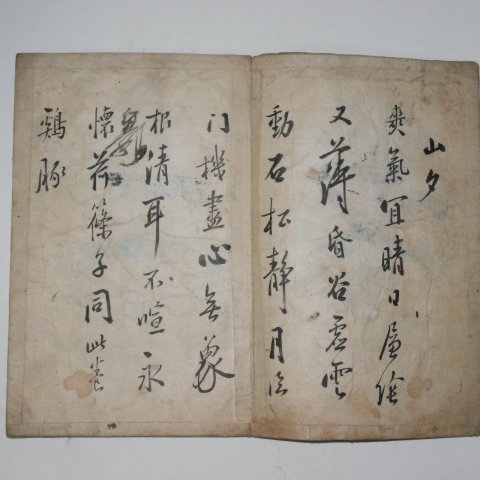 山夕
爽氣宜晴日屋陰
又薄昏谷虛雲
動石松靜月
門機盡心無象
根清耳不喧永
懷荷篠子同此養
鷄豚